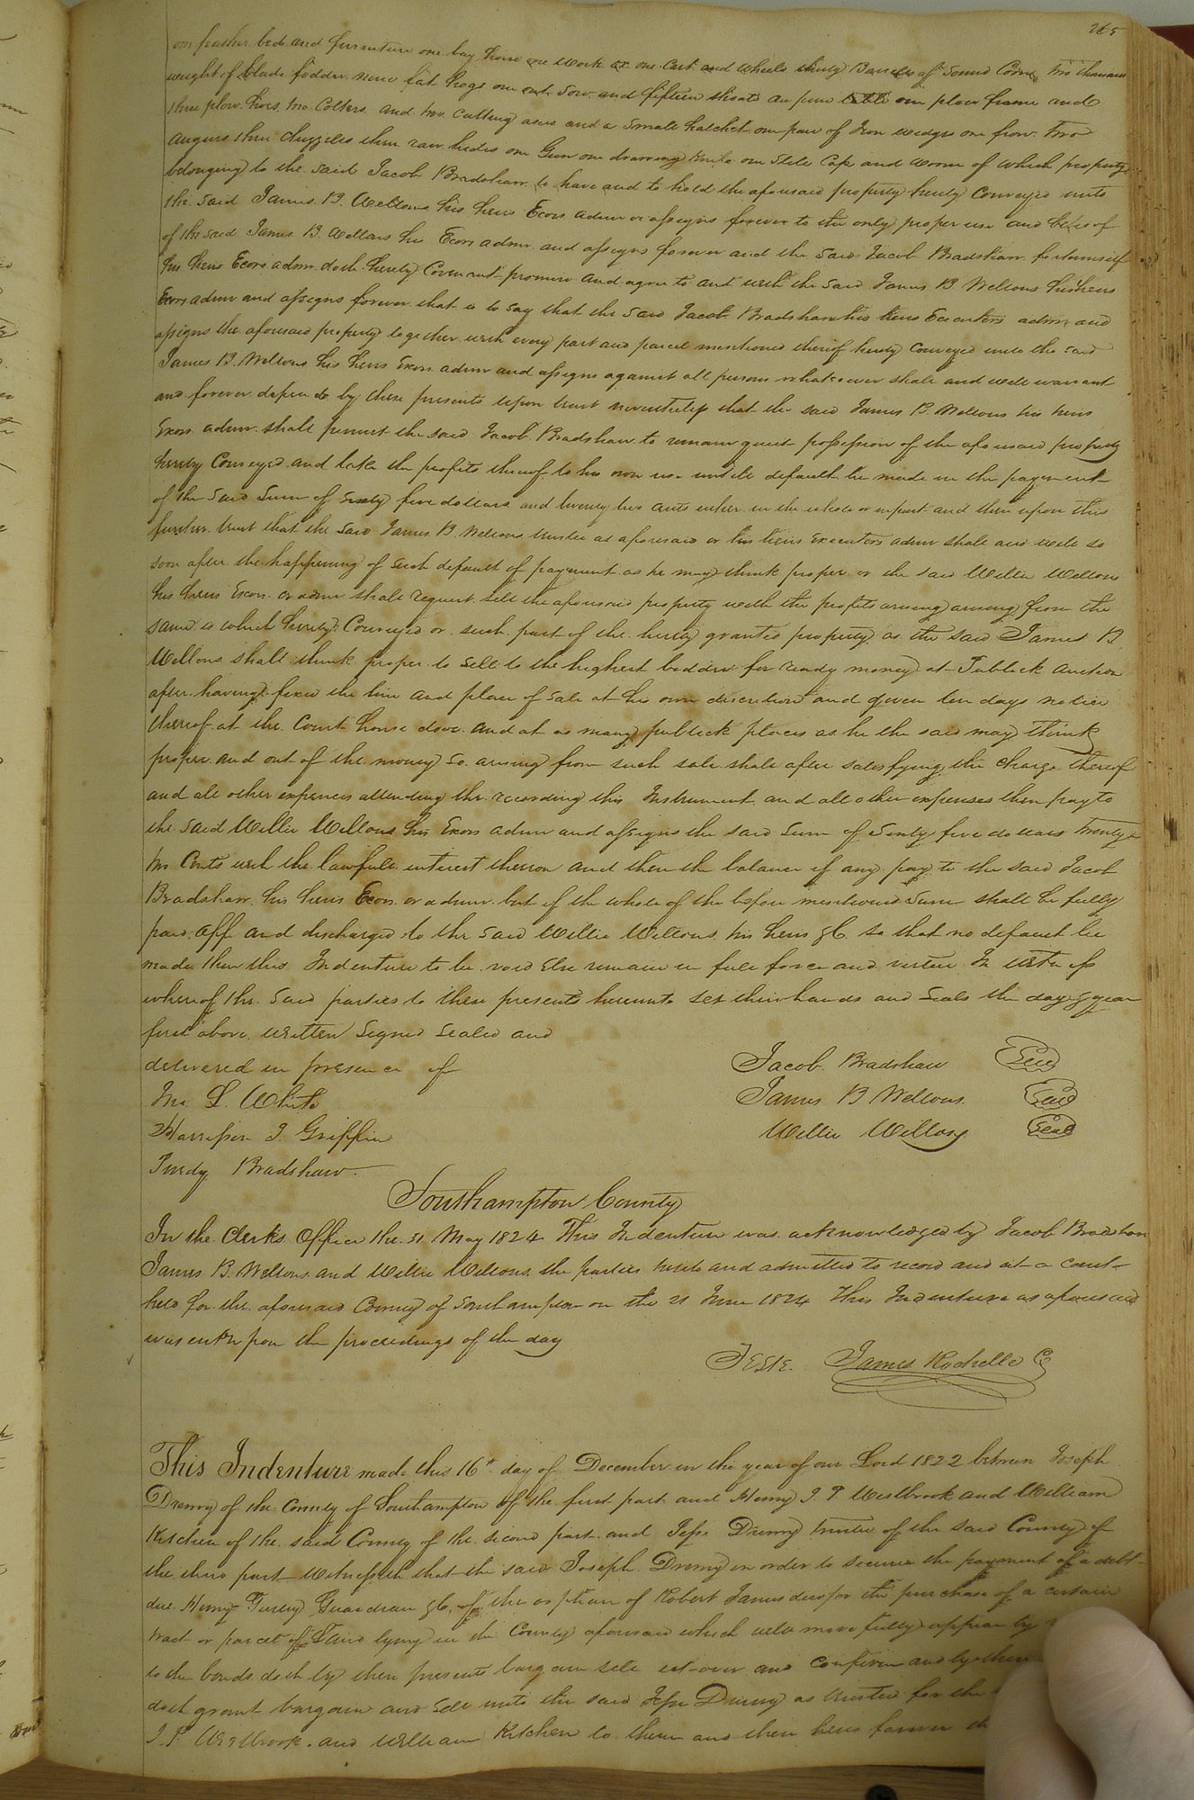 265
one feather bed and furniture one bay horse one work ox one Cart and wheels thirty Barrells of Sound Corn two thousand
weight of blade fodder nine fat hogs one sow and fifteen shoats one plow frame and
three plow hoes, two Colters and two Cutting axes and a Small hatchet one pair of Iron wedges one frow two
augurs three Chizzles three raw hides one Gun one drawing knife one Still Cap and worm of which property
belonging to the said Jacob Bradshaw to have and to hold the aforesaid property hereby Conveyed unto
the said James B. Mellons his heirs Exors admr or assigns forever to the only proper use and of
of the said James B. Mellons his Exors admr. and assigns forever and the said Jacob Bradshaw for himself
his heirs Exors admr. doth hereby Covenant promise and agree to and with the said James B Mellons his heirs
Exors admr and assigns forever that is to say that the said Jacob Bradshaw his heirs Executors admr. and
assigns the aforesaid property together with every part and parcel mentioned thereof hereby Conveyed unto the said
James B. Mellons his heirs Exors admr and assigns against all persons whatsoever shall and will warrant
and forever defend by these presents upon trust nevertheless that the said James B. Mellons his heirs
Exors admr. shall permit the said Jacob Bradshaw to remain quiet possession of the aforesaid property
hereby Conveyed and take the profits thereof to his own use untill default be made in the payment
of the said Sum of Sixty five dollars and twenty two cents either in the whole or in part and then upon this
further trust that the said James B. Mellons trustee as aforesaid or his heirs Executors admr shall and will so
soon after the happening of such default of payment as he may think proper or the said Willie Mellons
his heirs Exors. or admr shall request sell the aforesaid property with the profits arising arising from the
same is which hereby Conveyed or such part of the hereby granted property as the said James B.
Mellons shall think proper to sell to the highest bidder for ready money at Publick Auction
after having fixed the time and place of sale at his own discretion and given ten days notice
thereof at the Court house door and at as many publick places as he the said may think
proper and out of the money so arising from such sale shall after satisfying the charge thereof
and all other expences attending the recording this Instrument and all other expenses then pay to
the said Willie Mellons his Exors admr and assigns the said Sum of Sixty five dollars twenty
two Cents with the lawfull interest thereon and then the balance if any pay to the said Jacob
Bradshaw his heirs Exors or admr. but if the whole of the before mentioned Sum shall be fully
paid off and discharged to the said Willie Mellons, his heirs &c so that no default be
made then this Indenture to be void Else remain in full force and virtue In witness
whereof the said parties to these presents hereunto set their hands and Seals the day & year
first above written Signed Sealed and
delivered in presence of
Jacob Bradshaw Seal
Jno. L. White
James B Mellons Seal
Harrison J. Griffin
Willie Mellons Seal
Bradshaw
Southampton County
In the Clerks Office the 31 May 1824 This Indenture was acknowledged by Jacob Bradshaw
James B. Mellons and Willie Mellons the parties hereto and admitted to record and at a court
held for the aforesaid County of Southampton on the 21 June 1824 This Indenture as aforesaid
was entd. upon the proceedings of the day
Teste. James Rochelle C
This Indenture made this 16th day of December in the year of our Lord 1822 between Joseph
Drewry of the County of Southampton of the first part and Henry J T Westbrook and William
Kitchen of the said County of the second part and Jesse Drewry trustee of the said County of
the third part Witnesseth that the said Joseph Drewry in order to secure the payment of a debt
due Henry Gurley Guardian &c. of the orphan of Robert James decd for the purchase of a certain
tract or parcel of Land lying in the County aforesaid which will more fully appear by
to the bonds doth by these presents bargain sell set over and confirm and by these
doth grant bargain and Sell unto the said Jesse Drewry as trustee for the
J. T. Westbrook. and William Kitchen to them and their heirs forever